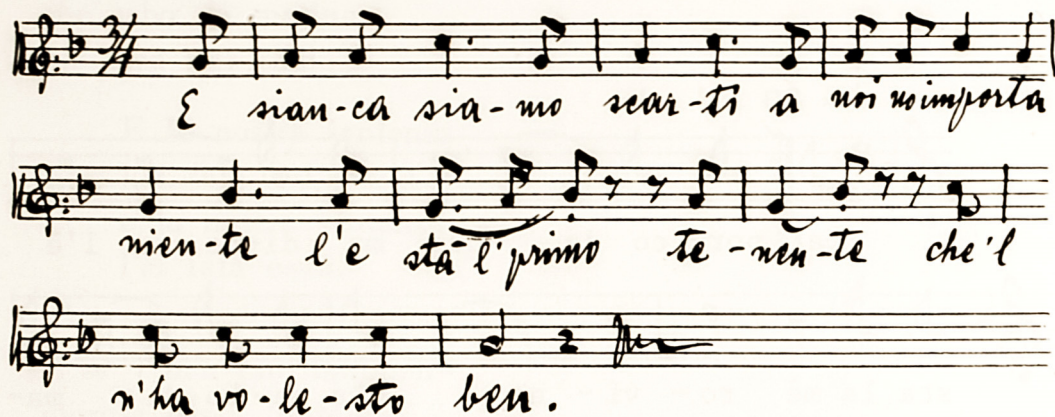 3/4
E sian-ca sia-mo scar-ti a noi noimporta
nien-te l'e sta l'primo te-nen-te che'l
n'ha vo-le-sto ben.